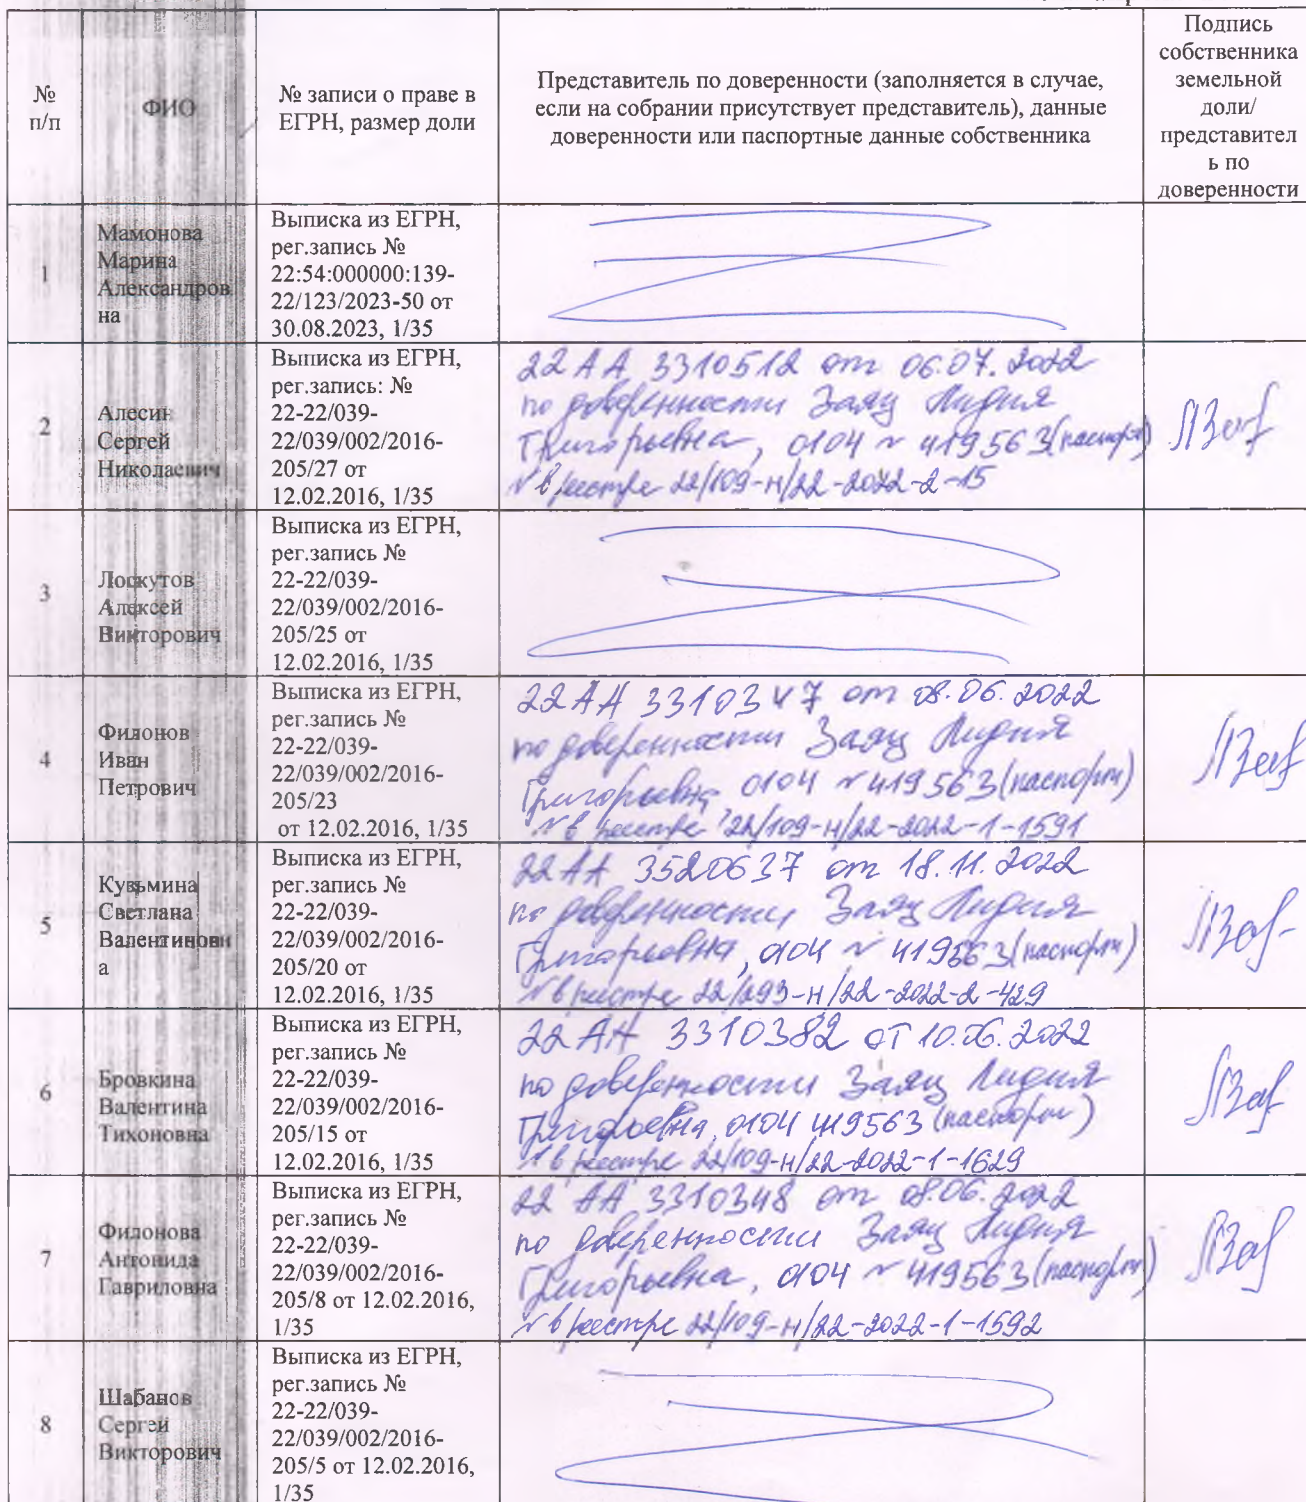 №
п/п
ФИО
№ записи о праве в
ЕГРН, размер доли
Представитель по доверенности (заполняется в случае,
если на собрании присутствует представитель), данные
доверенности или паспортные данные собственника
Подпись
собственника
земельной
доли/
представител
ь по
доверенности
1
Мамонова
Марина
Александров
на
Выписка из ЕГРН,
рег.запись №
22:54:000000:139-
22/123/2023-50 от
30.08.2023, 1/35
2
Алесин
Сергей
Николаевич
Выписка из ЕГРН,
рег.запись: №
22-22/039-
22/039/002/2016-
205/27 от
12.02.2016, 1/35
22 АА 3310512 от 06.07.2022
по доверенности Заяц Лидия
Григорьевна, 0104 № 419563 (паспорт)
№ в реестре 22/109-н/22-2022-2-15
3
Лоскутов
Алексей
Викторович
Выписка из ЕГРН,
рег.запись №
22-22/039-
22/039/002/2016-
205/25 от
12.02.2016, 1/35
4
Филонов
Иван
Петрович
Выписка из ЕГРН,
рег.запись №
22-22/039-
22/039/002/2016-
205/23
от 12.02.2016, 1/35
22 АА 3310347 от 08.06.2022
по доверенности Заяц Лидия
Григорьевна 0104 № 419563 (паспорт)
№ в реестре 22/109-н/22-2022-1-1591
5
Кузьмина
Светлана
Валентиновн
а
Выписка из ЕГРН,
рег.запись №
22-22/039-
22/039/002/2016-
205/20 от
12.02.2016, 1/35
22 АА 3520637 от 18.11.2022
по доверенности Заяц Лидия
Григорьевна, 0104 № 419563 (паспорт)
№ в реестре 22/293-н/22-2022-2-429
6
Бровкина
Валентина
Тихоновна
Выписка из ЕГРН,
рег.запись №
22-22/039-
22/039/002/2016-
205/15 от
12.02.2016, 1/35
22 АА 3310382 от 10.06.2022
по доверенности Заяц Лидия
Григорьевна, 0104 419563 (паспорт)
№ в реестре 22/109-н/22-2022-1-1629
7
Филонова
Антонида
Гавриловна
Выписка из ЕГРН,
рег.запись №
22-22/039-
22/039/002/2016-
205/8 от 12.02.2016,
1/35
22 АА 3310348 от 08.06.2022
по доверенности Заяц Лидия
Григорьевна, 0104 № 419563 (паспорт)
№ в реестре 22/109-н/22-2022-1-1592
8
Шабанов
Сергей
Викторович
Выписка из ЕГРН,
рег.запись №
22-22/039-
22/039/002/2016-
205/5 от 12.02.2016,
1/35